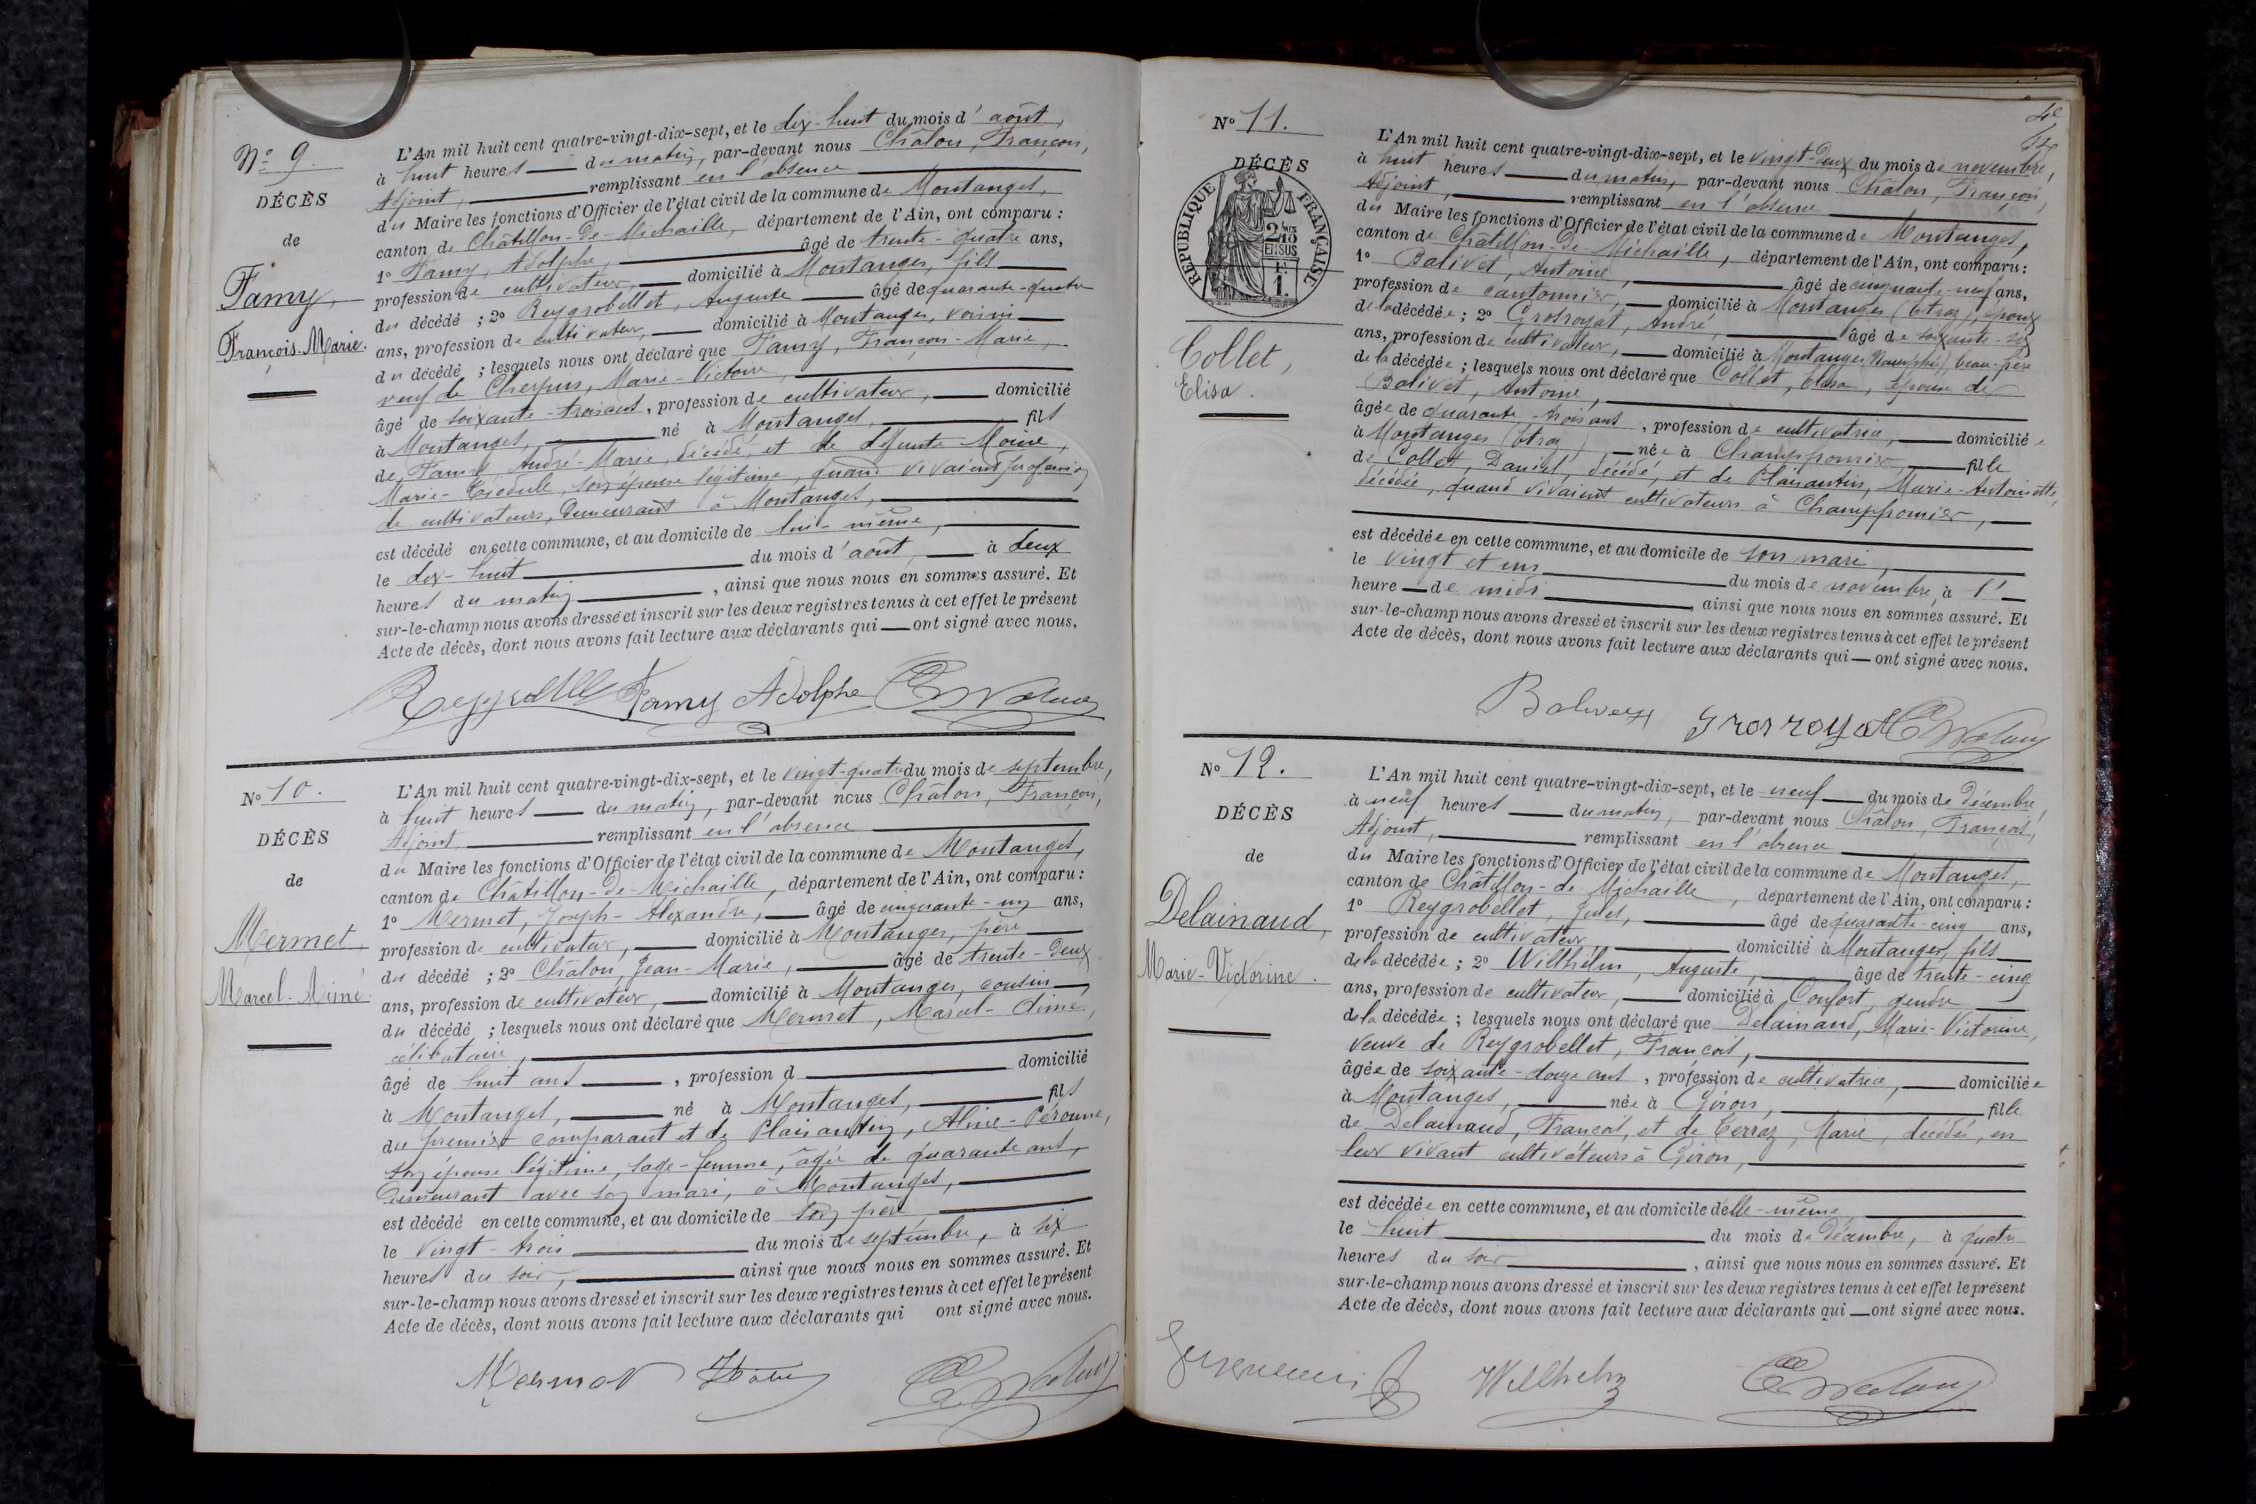 Nº 9.
DÉCÈS
de
Famy,
François-Marie.
L'An mil huit cent quatre-vingt-dix-sept, et le dix-huit du mois d'août,
à huit heures du matin, par-devant nous Châlon, François,
Adjoint, remplissant en l'absence
du Maire les fonctions d'Officier de l'état civil de la commune de Montanges,
canton de Châtillon-de-Michaille, département de l'Ain, ont comparu :
1º Famy, Adolphe, âgé de trente-quatre ans,
profession de cultivateur, domicilié à Montanges, fils
du décédé ; 2º Reygrobellet, Auguste âgé de quarante-quatre
ans, profession de cultivateur, domicilié à Montanges, voisin
du décédé ; lesquels nous ont déclaré que Famy, François-Marie,
veuf de Cherpus, Marie-Victoire,
âgé de soixante-trois ans, profession de cultivateur, domicilié
à Montanges, né à Montanges, fils
de Famy, André-Marie, décédé, et de défunte Moine,
Marie-Théodule, son épouse légitime, quand vivaient
de cultivateurs, demeurant à Montanges,
est décédé en cette commune, et au domicile de lui-même,
le dix-huit du mois d'août, à deux
heures du matin, ainsi que nous nous en sommes assuré. Et
sur-le-champ nous avons dressé et inscrit sur les deux registres tenus à cet effet le présent
Acte de décès, dont nous avons fait lecture aux déclarants qui ont signé avec nous.
Famy Adolphe
Nº 10.
DÉCÈS
de
Mermet,
Marcel-Aimé
L'An mil huit cent quatre-vingt-dix-sept, et le vingt-quatre du mois de septembre,
à huit heures du matin, par-devant nous Châlon, François,
Adjoint, remplissant en l'absence
du Maire les fonctions d'Officier de l'état civil de la commune de Montanges,
canton de Châtillon-de-Michaille, département de l'Ain, ont comparu :
1º Mermet, Joseph-Alexandre, âgé de cinquante-un ans,
profession de cultivateur, domicilié à Montanges, père
du décédé ; 2º Châlon, Jean-Marie, âgé de trente-deux
ans, profession de cultivateur, domicilié à Montanges, cousin
du décédé ; lesquels nous ont déclaré que Mermet, Marcel-Aimé,
célibataire,
âgé de huit ans, profession d domicilié
à Montanges, né à Montanges, fils
du premier comparant et de Plaisantin, Aline-Péronne,
son épouse légitime, sage-femme, âgée de quarante ans,
demeurant avec son mari, à Montanges,
est décédé en cette commune, et au domicile de son père
le vingt-trois du mois de septembre, à six
heures du soir, ainsi que nous nous en sommes assuré. Et
sur-le-champ nous avons dressé et inscrit sur les deux registres tenus à cet effet le présent
Acte de décès, dont nous avons fait lecture aux déclarants qui ont signé avec nous.
Mermet
Nº 11.
DÉCÈS
RÉPUBLIQUE FRANÇAISE
Collet,
Elisa.
L'An mil huit cent quatre-vingt-dix-sept, et le vingt-deux du mois de novembre,
à huit heures du matin, par-devant nous Châlon, François,
Adjoint, remplissant en l'absence
du Maire les fonctions d'Officier de l'état civil de la commune de Montanges,
canton de Châtillon-de-Michaille, département de l'Ain, ont comparu :
1º Balivet, Antoine, âgé de cinquante-neuf ans,
profession de cantonnier, domicilié à Montanges (Etraz), époux
de la décédée ; 2º Grosroyat, André, âgé de soixante-six
ans, profession de cultivateur, domicilié à Montanges beau-père
de la décédée ; lesquels nous ont déclaré que Collet, Elisa, épouse de
Balivet, Antoine,
âgée de quarante-trois ans, profession de cultivatrice, domiciliée
à Montanges (Etraz), née à Champfromier, fille
de Collet, Daniel, décédé, et de Plaisantin, Marie-Antoinette,
décédée, quand vivaient cultivateurs à Champfromier,
est décédée en cette commune, et au domicile de son mari,
le vingt et un du mois de novembre, à l'
heure de midi ainsi que nous nous en sommes assuré. Et
sur-le-champ nous avons dressé et inscrit sur les deux registres tenus à cet effet le présent
Acte de décès, dont nous avons fait lecture aux déclarants qui ont signé avec nous.
Balivet Grosroyat
Nº 12.
DÉCÈS
de
Delainaud,
Marie-Victorine.
L'An mil huit cent quatre-vingt-dix-sept, et le neuf du mois de décembre,
à neuf heures du matin, par-devant nous Châlon, François,
Adjoint, remplissant en l'absence
du Maire les fonctions d'Officier de l'état civil de la commune de Montanges,
canton de Châtillon-de-Michaille, département de l'Ain, ont comparu :
1º Reygrobellet, Jules, âgé de quarante-cinq ans,
profession de cultivateur, domicilié à Montanges, fils
de la décédée ; 2º Wilthélm, Auguste, âgé de trente-cinq
ans, profession de cultivateur, domicilié à Confort, gendre
de la décédée ; lesquels nous ont déclaré que Delainaud, Marie-Victorine,
veuve de Reygrobellet, François,
âgée de soixante-douze ans, profession de cultivatrice, domiciliée
à Montanges, née à Giron, fille
de Delainaud, François, et de Terraz, Marie, décédés, en
leur vivant cultivateurs à Giron,
est décédée en cette commune, et au domicile d'elle-même
le huit du mois de décembre, à quatre
heures du soir, ainsi que nous nous en sommes assuré. Et
sur-le-champ nous avons dressé et inscrit sur les deux registres tenus à cet effet le présent
Acte de décès, dont nous avons fait lecture aux déclarants qui ont signé avec nous.
Wilthelm